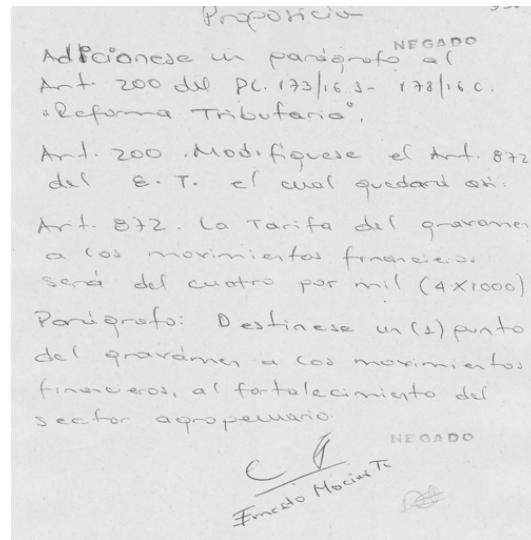 Proposición
NEGADO
Adiciónese un parágrafo al
Art. 200 del PL. 173/16.S- 178/16 C.
"Reforma Tributaria".
Art. 200. Modifíquese el Art. 872
del E.T. el cual quedará así:
Art. 872. La Tarifa del gravamen
a los movimientos financieros
será del cuatro por mil (4X1000)
Parágrafo: Destínese un (1) punto
del gravámen a los movimientos
financieros, al fortalecimiento del
sector agropecuario.
NEGADO
Ernesto Macías T